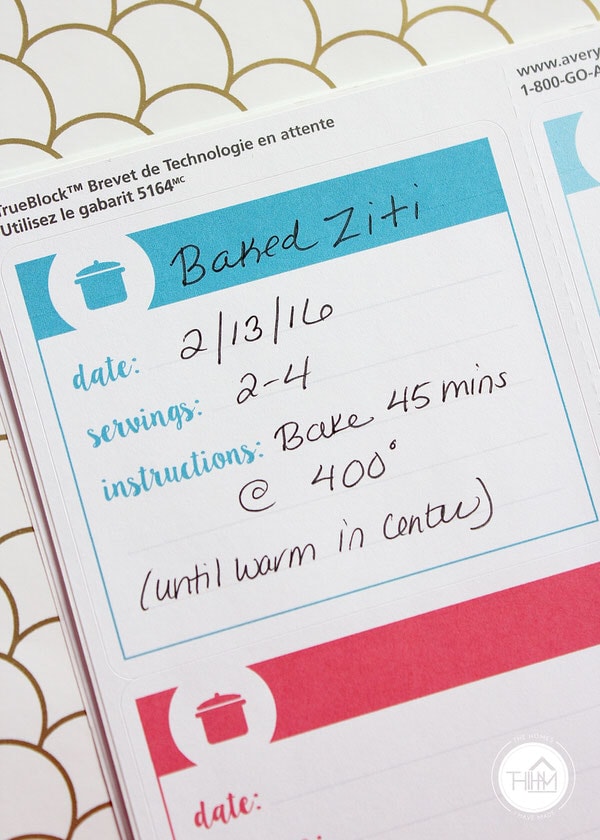 TrueBlock™ Brevet de Technologie en attente
Utilisez le gabarit 5164ᴹᶜ
www.avery
1-800-GO-A
Baked Ziti
date: 2/13/16
servings: 2-4
instructions: Bake 45 mins
@ 400°
(until warm in center)
date:
THE HOMES
THIHM
I HAVE MADE